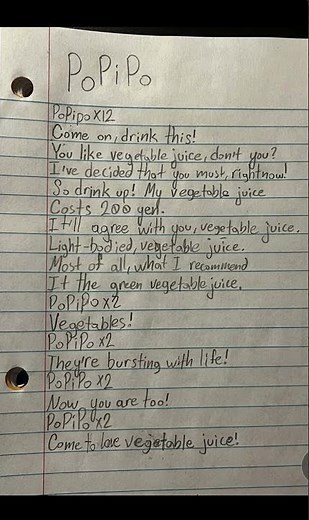 PoPiPo
PoPipo x12
Come on, drink this!
You like vegetable juice, don't you?
I've decided that you must, rightnow!
So drink up! My vegetable juice
Costs 200 yen.
It'll agree with you, vegetable juice.
Light-bodied, vegetable juice.
Most of all, what I recommend
It the green vegetable juice.
PoPiPo x2
Vegetables!
PoPiPo x2
They're bursting with life!
PoPiPo x2
Now, you are too!
PoPiPo x2
Come to love vegetable juice!